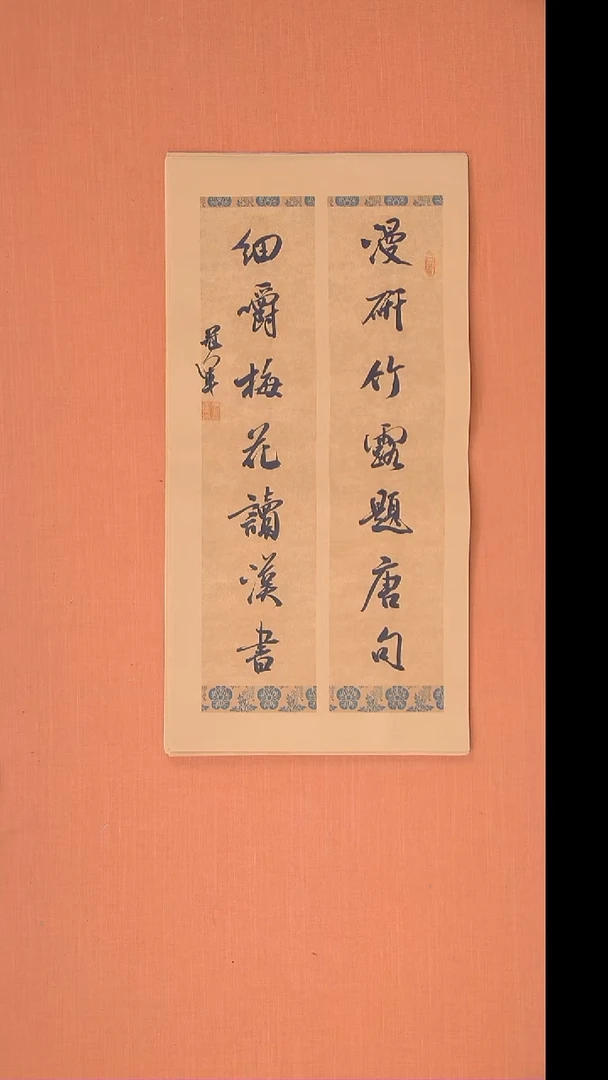 漫研竹露題唐句
細嚼梅花讀漢書
冠軍